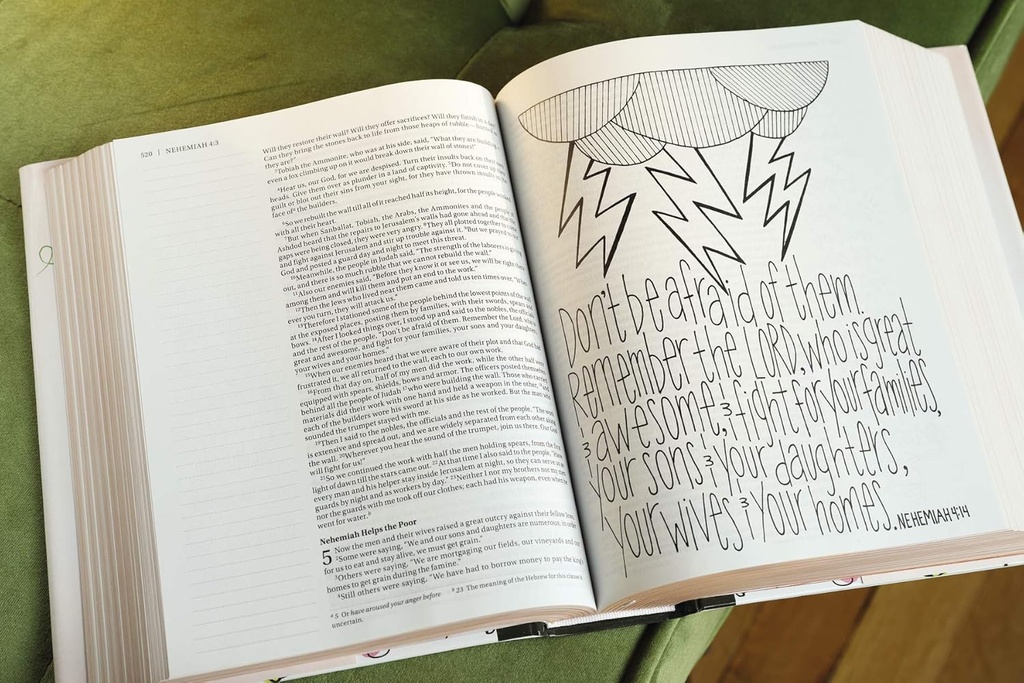 520 | NEHEMIAH 4:3
Will they restore their wall? Will they offer sacrifices? Will they finish in a
Can they bring the stones back to life from those heaps of rubble—
they are?"
³Tobiah the Ammonite, who was at his side, said, "What they are building
even a fox climbing up on it would break down their wall of stones!"
⁴Hear us, our God, for we are despised. Turn their insults back on their
heads. Give them over as plunder in a land of captivity. ⁵Do not cover up
guilt or blot out their sins from your sight, for they have thrown insults in
face of ᵃ the builders.
⁶So we rebuilt the wall till all of it reached half its height, for the people
with all their heart.
⁷But when Sanballat, Tobiah, the Arabs, the Ammonites and the people of
Ashdod heard that the repairs to Jerusalem's walls had gone ahead and that
gaps were being closed, they were very angry. ⁸They all plotted together to
and fight against Jerusalem and stir up trouble against it. ⁹But we prayed
God and posted a guard day and night to meet this threat.
¹⁰Meanwhile, the people in Judah said, "The strength of the laborers is
out, and there is so much rubble that we cannot rebuild the wall."
¹¹Also our enemies said, "Before they know it or see us, we will be right there
among them and will kill them and put an end to the work."
¹²Then the Jews who lived near them came and told us ten times over,
ever you turn, they will attack us."
¹³Therefore I stationed some of the people behind the lowest points of the wall
at the exposed places, posting them by families, with their swords, spears and
¹⁴After I looked things over, I stood up and said to the nobles, the officials
and the rest of the people, "Don't be afraid of them. Remember the Lord, who is
great and awesome, and fight for your families, your sons and your daughters,
your wives and your homes."
¹⁵When our enemies heard that we were aware of their plot and that God had
frustrated it, we all returned to the wall, each to our own work.
¹⁶From that day on, half of my men did the work, while the other half were
equipped with spears, shields, bows and armor. The officers posted themselves
behind all the people of Judah ¹⁷who were building the wall. Those who carried
materials did their work with one hand and held a weapon in the other, ¹⁸and
each of the builders wore his sword at his side as he worked. But the man who
sounded the trumpet stayed with me.
¹⁹Then I said to the nobles, the officials and the rest of the people, "The work
is extensive and spread out, and we are widely separated from each other along
the wall. ²⁰Wherever you hear the sound of the trumpet, join us there. Our God
will fight for us!"
²¹So we continued the work with half the men holding spears, from the first
light of dawn till the stars came out. ²²At that time I also said to the people, "Have
every man and his helper stay inside Jerusalem at night, so they can serve us as
guards by night and as workers by day." ²³Neither I nor my brothers nor my men
nor the guards with me took off our clothes; each had his weapon, even when he
went for water.ᵇ
Nehemiah Helps the Poor
5 Now the men and their wives raised a great outcry against their fellow Jews.
²Some were saying, "We and our sons and daughters are numerous; in order
for us to eat and stay alive, we must get grain."
³Others were saying, "We are mortgaging our fields, our vineyards and our
homes to get grain during the famine."
⁴Still others were saying, "We have had to borrow money to pay the king's
ᵃ 5 Or have aroused your anger before ᵇ 23 The meaning of the Hebrew for this clause is
uncertain.
Don't be afraid of them.
Remember the LORD, who is great
& awesome, & fight for your families,
your sons & your daughters,
your wives & your homes. NEHEMIAH 4:14